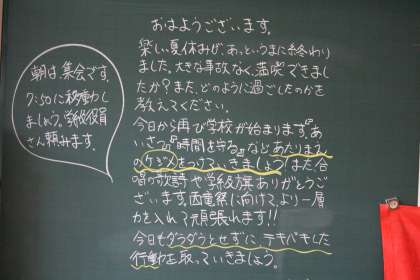 おはようございます。
楽しい夏休みが、あっというまに終わり
ました。大きな事故なく、満喫できまし
たか?また、どのように過ごしたのかを
教えてください。
今日から再び学校が始まります。『あ
いさつ』『時間を守る』などあたりまえ
のケジメをつけていきましょう。また、合
唱の歌詩や学級旗ありがとうござ
います。西竜祭に向けて、より一層
力を入れて頑張れます!!
今日もダラダラとせずに、テキパキした
行動を取っていきましょう。
朝は、集会です。
7:50に移動し
ましょう。学級役員
さん頼みます。